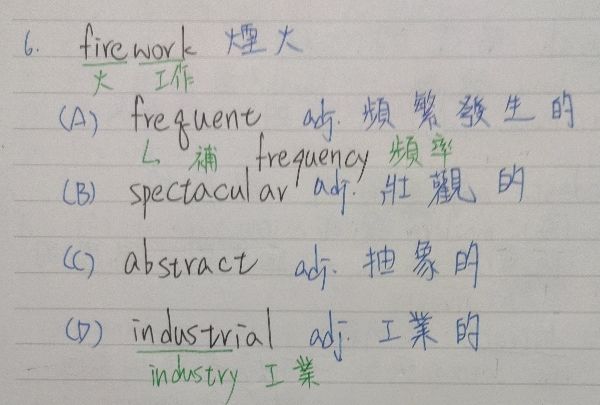 6. firework 煙火
火 工作
(A) frequent adj. 頻繁發生的
↳ 補 frequency 頻率
(B) spectacular adj. 壯觀的
(C) abstract adj. 抽象的
(D) industrial adj. 工業的
industry 工業